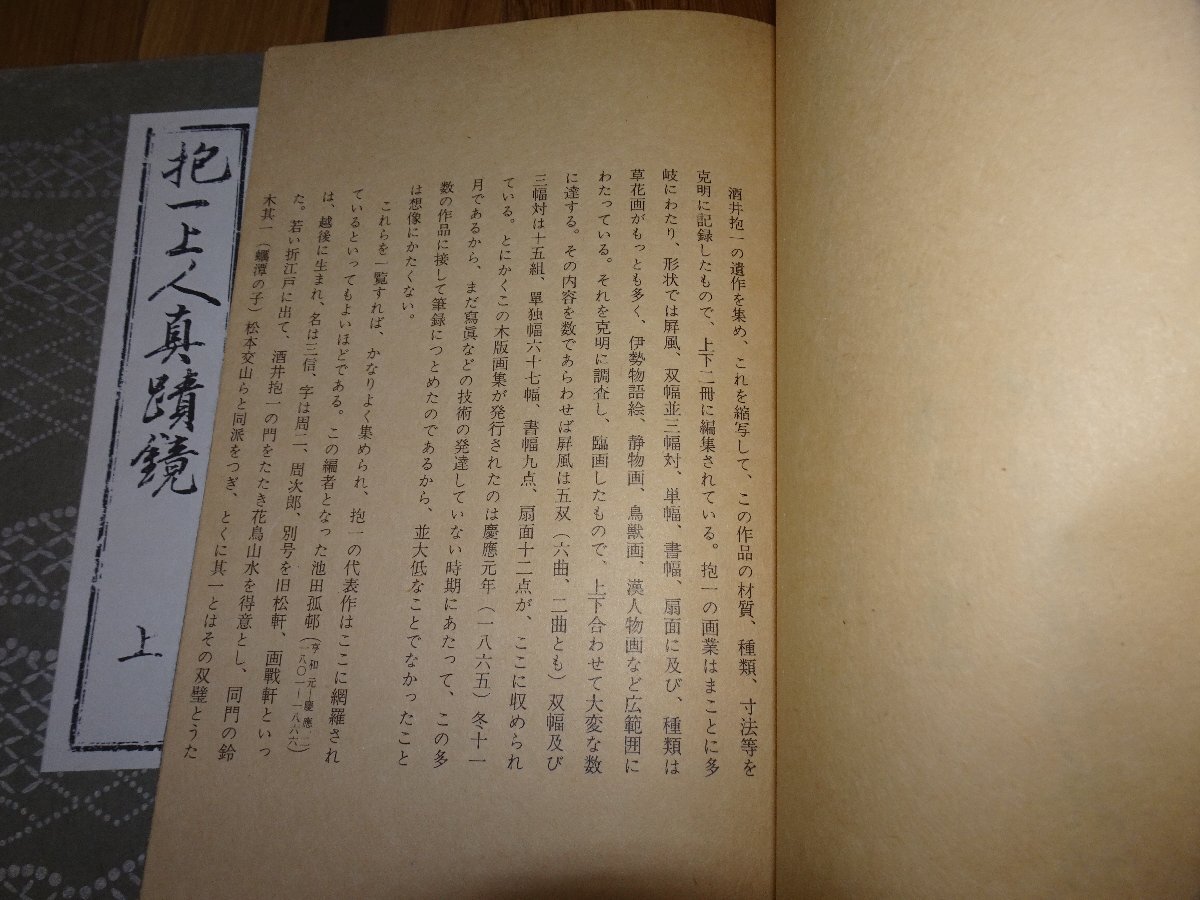 酒井抱一の遺作を集め、これを縮写して、この作品の材質、種類、寸法等を
克明に記録したもので、上下二冊に編集されている。抱一の画業はまことに多
岐にわたり、形状では屛風、双幅並三幅対、単幅、書幅、扇面に及び、種類は
草花画がもっとも多く、伊勢物語絵、静物画、鳥獣画、漢人物画など広範囲に
わたっている。それを克明に調査し、臨画したもので、上下合わせて大変な数
に達する。その内容を数であらわせば屛風は五双（六曲、二曲とも）双幅及び
三幅対は十五組、單独幅六十七幅、書幅九点、扇面十二点が、ここに収められ
ている。とにかくこの木版画集が発行されたのは慶應元年（一八六五）冬十一
月であるから、まだ寫眞などの技術の発達していない時期にあたって、この多
数の作品に接して筆録につとめたのであるから、並大低なことでなかったこと
は想像にかたくない。
これらを一覧すれば、かなりよく集められ、抱一の代表作はここに網羅され
ているといってもよいほどである。この編者となった池田孤邨（享和元—慶應二 一八〇一—一八六六）
は、越後に生まれ、名は三信、字は周二、周次郎、別号を旧松軒、画戰軒といっ
た。若い折江戸に出て、酒井抱一の門をたたき花鳥山水を得意とし、同門の鈴
木其一（蠣潭の子）松本交山らと同派をつぎ、とくに其一とはその双璧とうた
抱一上人真蹟鏡 上